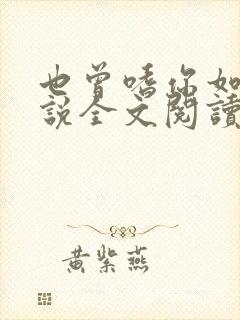 也曾嗜你如
說全文閱讀
黃紫燕